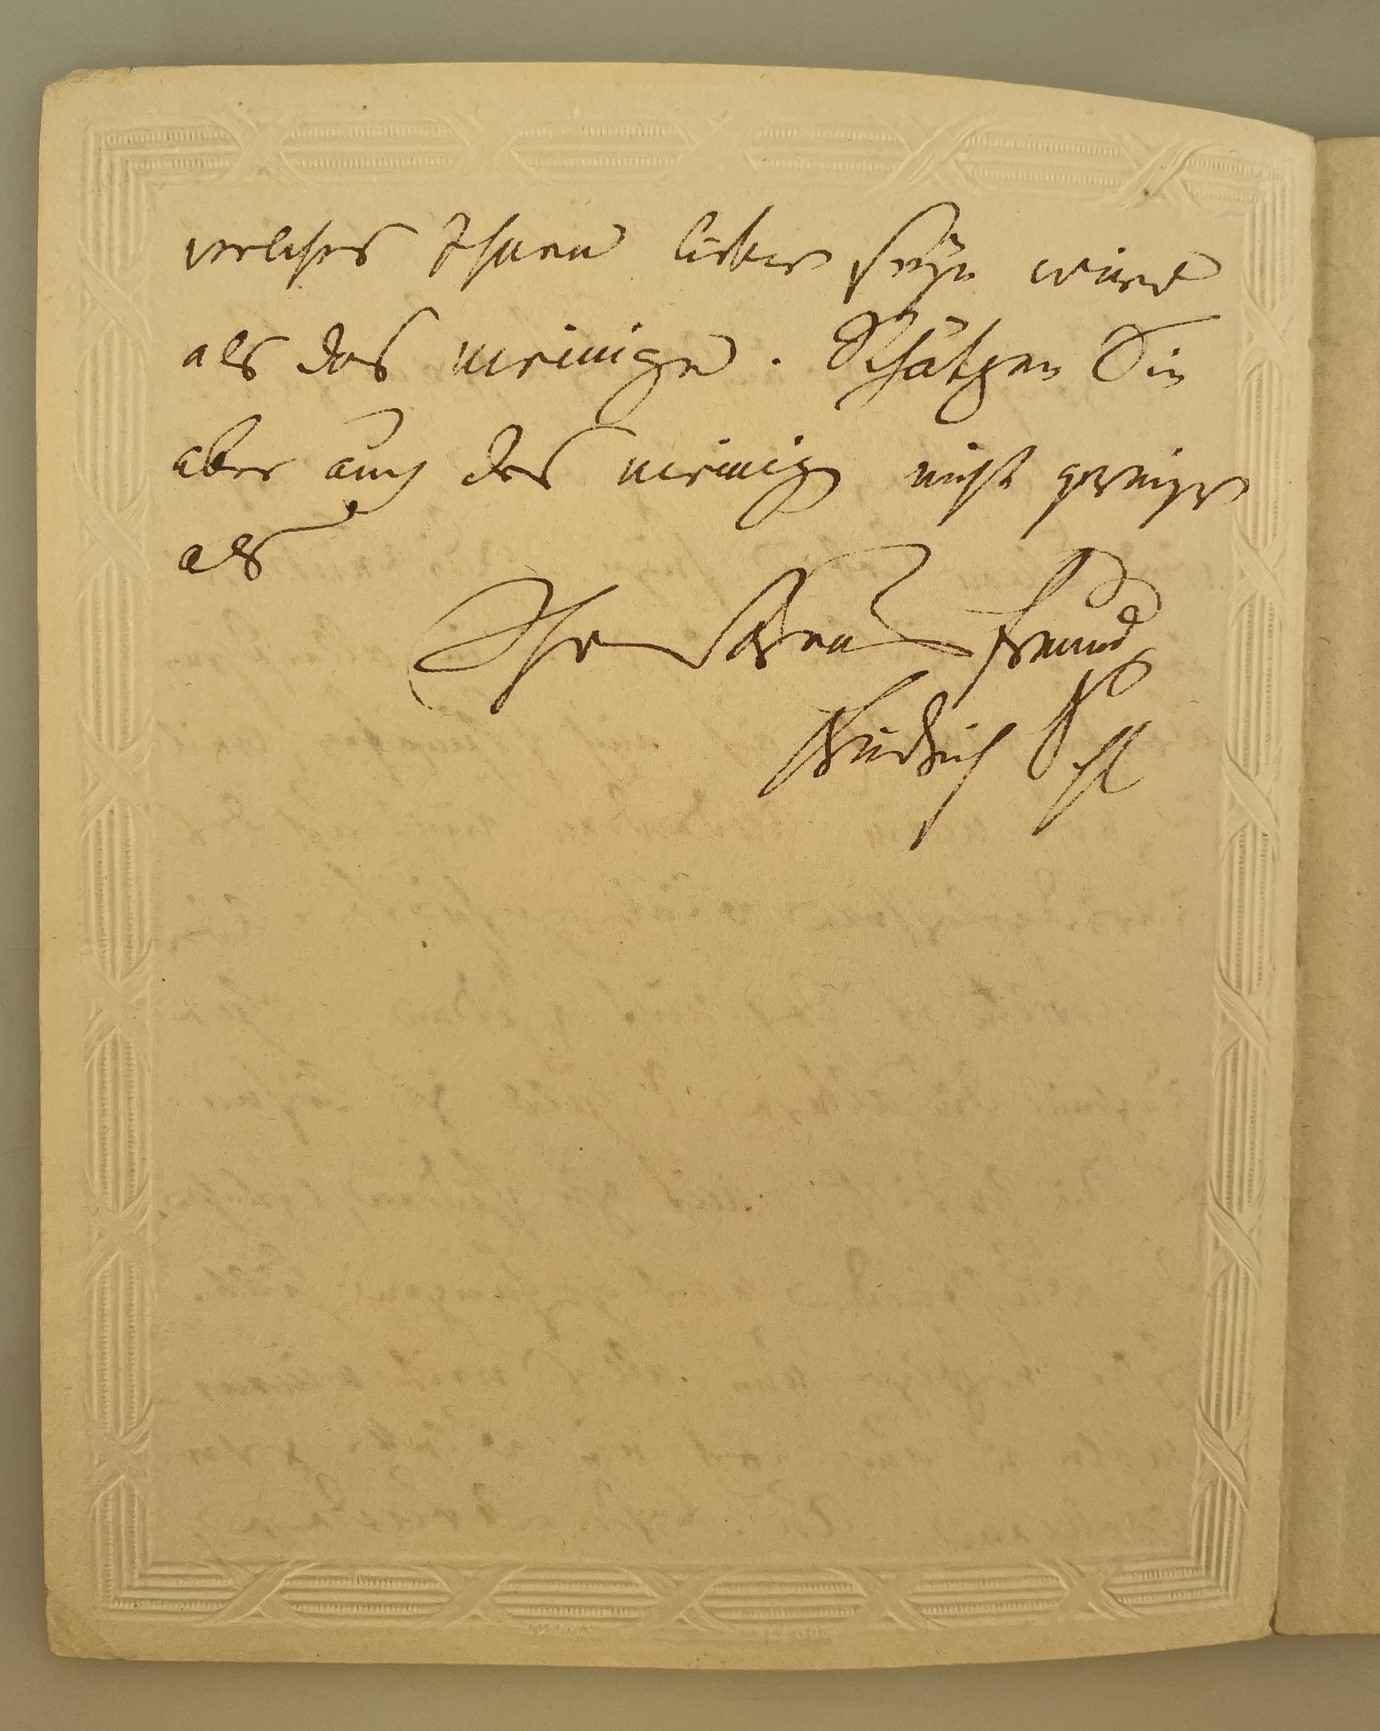 welches Ihnen lieber seyn wird
als das meinige. Schätzen Sie
aber auch das meinige nicht geringer
als
Ihr Freund
Friedrich Schl